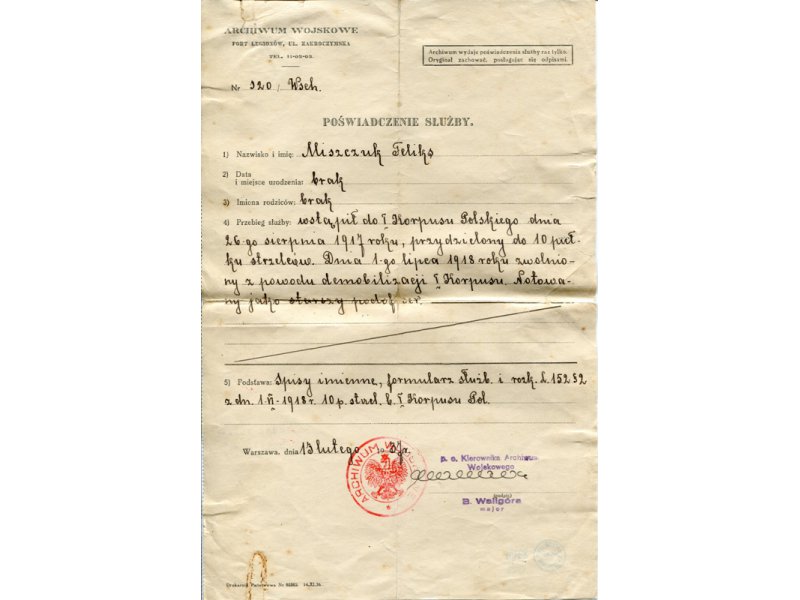 ARCHIWUM WOJSKOWE
FORT LEGIONÓW, UL. ZAKROCZYMSKA
TEL. 11-02-02.
Archiwum wydaje poświadczenia służby raz tylko.
Oryginał zachować, posługując się odpisami.
Nr 920/Wsch.
POŚWIADCZENIE SŁUŻBY.
1) Nazwisko i imię: Miszczuk Feliks
2) Data
i miejsce urodzenia: brak
3) Imiona rodziców: brak
4) Przebieg służby: wstąpił do I Korpusu Polskiego dnia
26-go sierpnia 1917 roku, przydzielony do 10 puł-
ku strzelców. Dnia 1-go lipca 1918 roku zwolnio-
ny z powodu demobilizacji I Korpusu. Notowa-
ny jako starszy podoficer.
5) Podstawa: Spisy imienne, formularz służb. i rozk. L. 152 § 2
z dn. 1.VI-1918 r. 10 p. strzel. b. I Korpusu Pol.
Warszawa, dnia 13 lutego 1937 r.
ARCHIWUM
p. o. Kierownika Archiwum
Wojskowego
(podpis)
B. Waligóra
major
Drukarnia Państwowa Nr 14.XI.36.